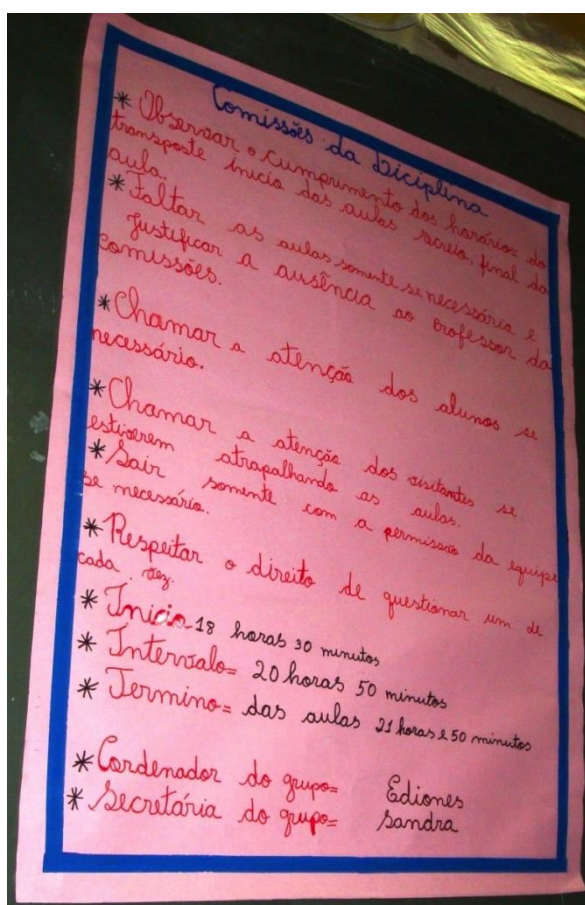 Comissões da Diciplina
* Observar o cumprimento dos horários: do
transposte inicio das aulas recreio, final da
aula.
* Faltar as aulas somente se necessária e
Justificar a ausência ao Professor da
comissões.
* Chamar a atenção dos alunos se
necessário.
* Chamar a atenção dos visitantes se
estiverem atrapalhando as aulas.
* Sair somente com a permissão da equipe
se necessário.
* Respeitar o direito de questionar um de
cada vez.
* Inicio 18 horas 30 minutos
* Intervalo= 20 horas 50 minutos
* Termino= das aulas 21 horas e 50 minutos
* Cordenador do grupo= Ediones
* Secretária do grupo= Sandra